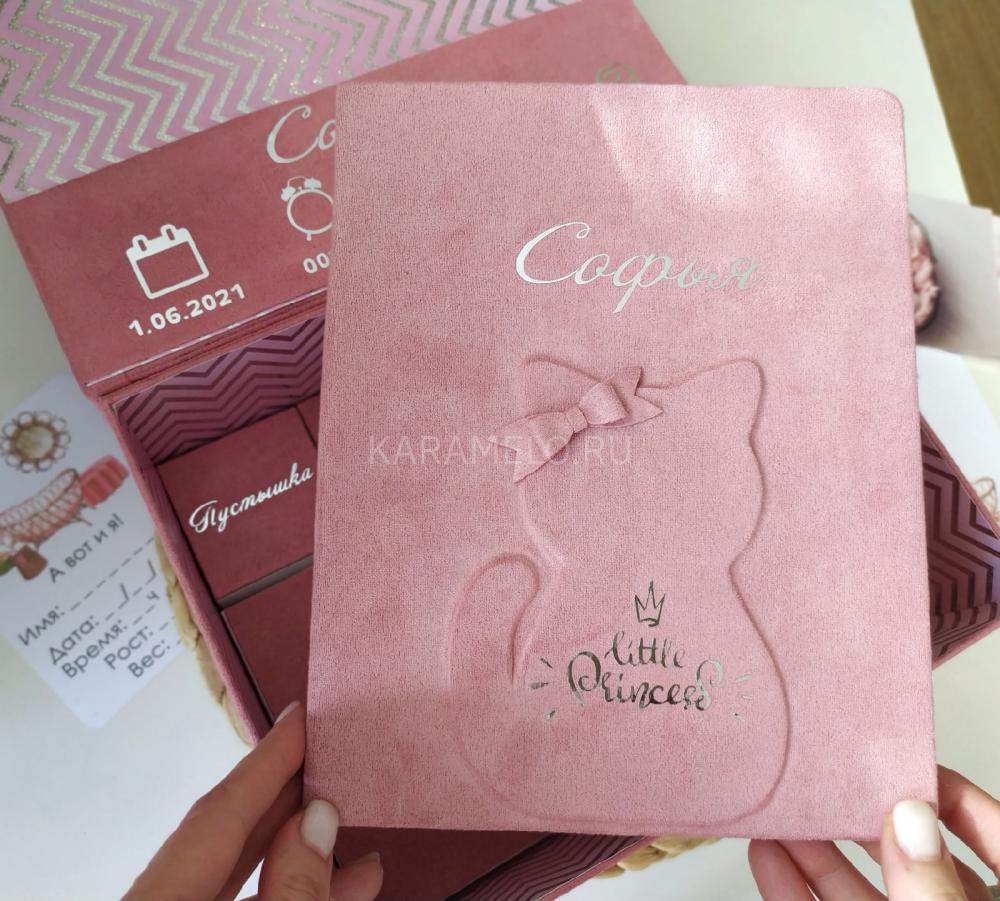 Со
1.06.2021
00
Софья
KARAMELO.RU
Пустышка
little
Princess
А вот и я!
Имя:
Дата: __/__/
Время: __ ч
Рост:
Вес: